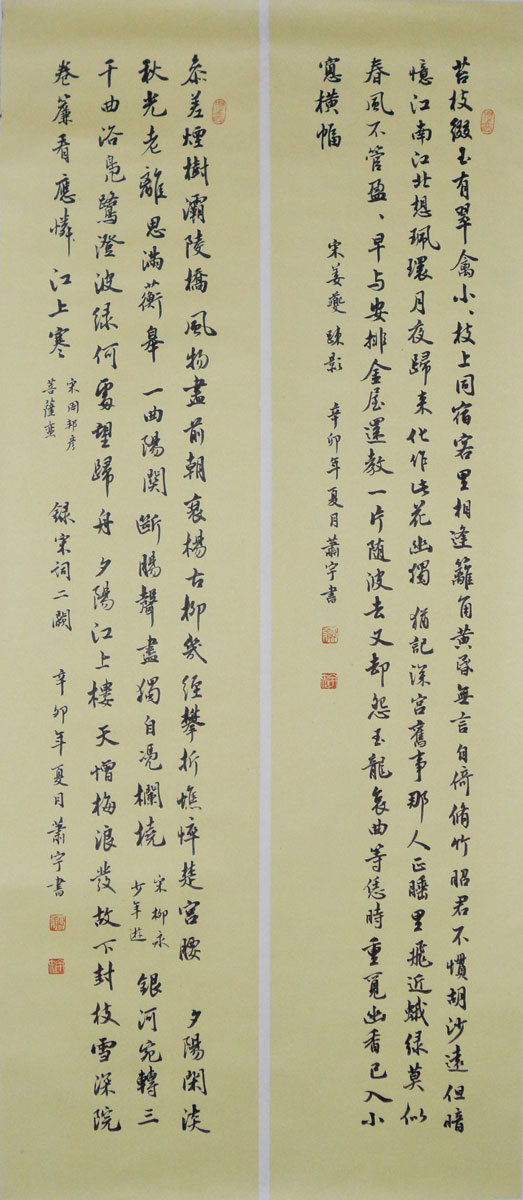 苔枝綴玉有翠禽小、枝上同宿客里相逢籬角黄昏無言自倚脩竹昭君不慣胡沙遠但暗
憶江南江北想珮環月夜歸来化作此花幽獨 猶記深宫舊事那人正睡里飛近蛾绿莫似
春風不管盈、早与安排金屋還教一片随波去又却怨玉龍哀曲等恁時重覓幽香已入小
窓横幅
宋姜夔 疎影 辛卯年夏月蕭宇書
叅差煙樹灞陵橋風物盡前朝衰楊古柳幾经攀折憔悴楚宫腰 夕陽閑淡
秋光老離思滿蘅皋 一曲陽関断腸聲盡獨自凭欄橈 宋柳永 少年遊 銀河宛轉三
千曲浴凫鷺澄波绿何處望歸舟 夕陽江上樓 天憎梅浪發故下封枝雪深院
卷簾看應憐江上寒 宋周邦彦 菩薩蛮 録宋词二闋 辛卯年夏月蕭宇書